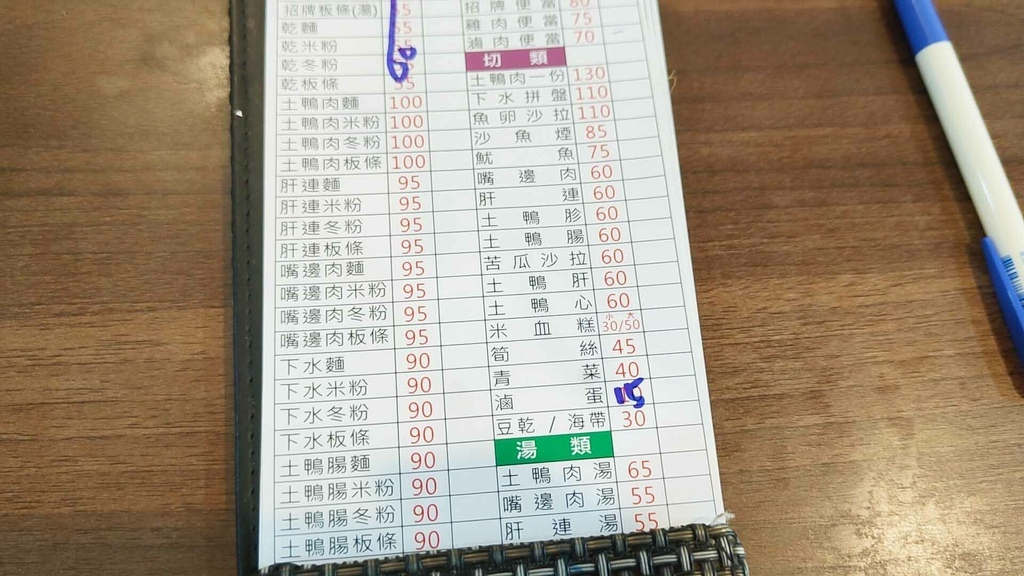 招牌板條(湯)
乾麵
乾米粉
乾冬粉
乾板條
土鴨肉麵 100
土鴨肉米粉 100
土鴨肉冬粉 100
土鴨肉板條 100
肝連麵 95
肝連米粉 95
肝連冬粉 95
肝連板條 95
嘴邊肉麵 95
嘴邊肉米粉 95
嘴邊肉冬粉 95
嘴邊肉板條 95
下水麵 90
下水米粉 90
下水冬粉 90
下水板條 90
土鴨腸麵 90
土鴨腸米粉 90
土鴨腸冬粉 90
土鴨腸板條 90
招牌便當 80
雞肉便當 75
滷肉便當 70
切類
土鴨肉一份 130
下水拼盤 110
魚卵沙拉 110
沙魚煙 85
魷魚 75
嘴邊肉 60
肝連 60
土鴨胗 60
土鴨腸 60
苦瓜沙拉 60
土鴨肝 60
土鴨心 60
米血糕 小大 30/50
筍絲 45
青菜 40
滷蛋 15
豆乾/海帶 30
湯類
土鴨肉湯 65
嘴邊肉湯 55
肝連湯 55